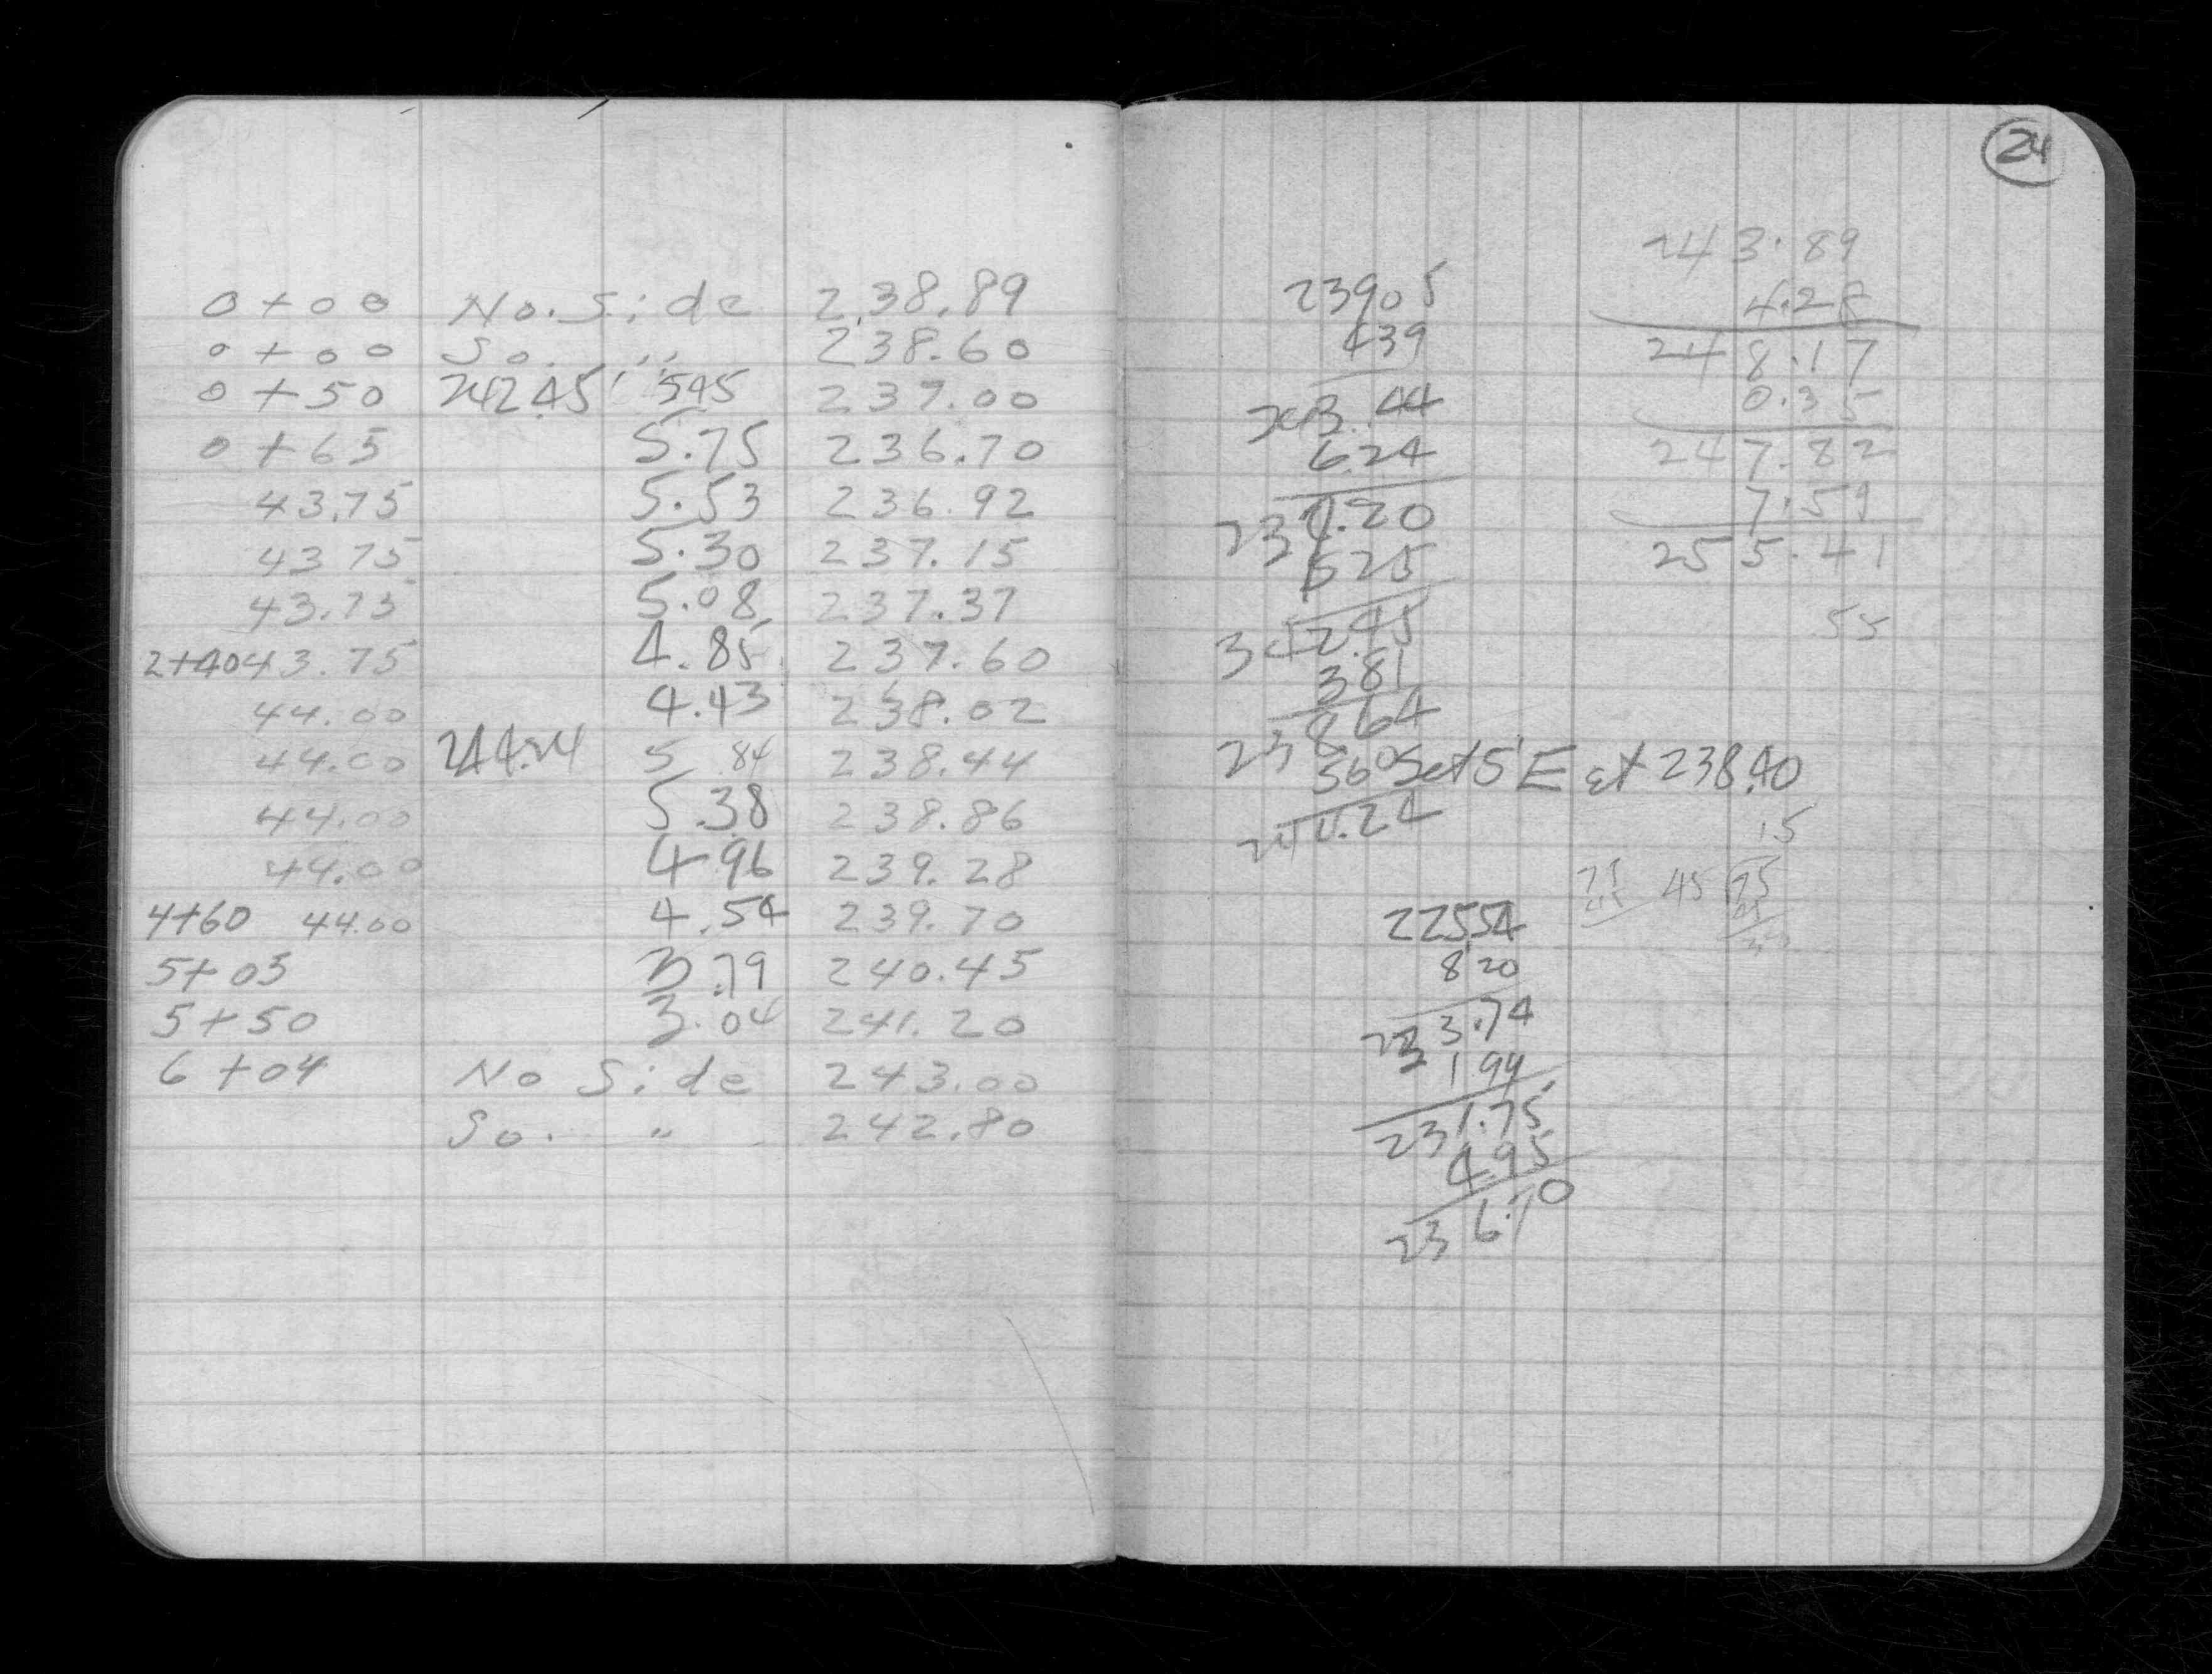 0+00 No. Side 238.89
0+00 So. " 238.60
0+50 242.45 545 237.00
0+65 5.75 236.70
43.75 5.53 236.92
43 75 5.30 237.15
43.75 5.08 237.37
2+40 43.75 4.85 237.60
44.00 4.43 238.02
44.00 244.24 5 84 238.44
44.00 5.38 238.86
44.00 4 96 239.28
4+60 44.00 4.54 239.70
5+03 3.79 240.45
5+50 3.04 241.20
6+04 No Side 243.00
So. " 242.80
24
23905
439
243.44
6.24
237.20
525
242.45
381
23864
560 Set 5' E at 238.40
244.24
22554
8 20
233.74
199
231.75
495
236.70
243.89
4.28
248.17
0.35
247.82
7.59
255.41
55
15
75 45 75